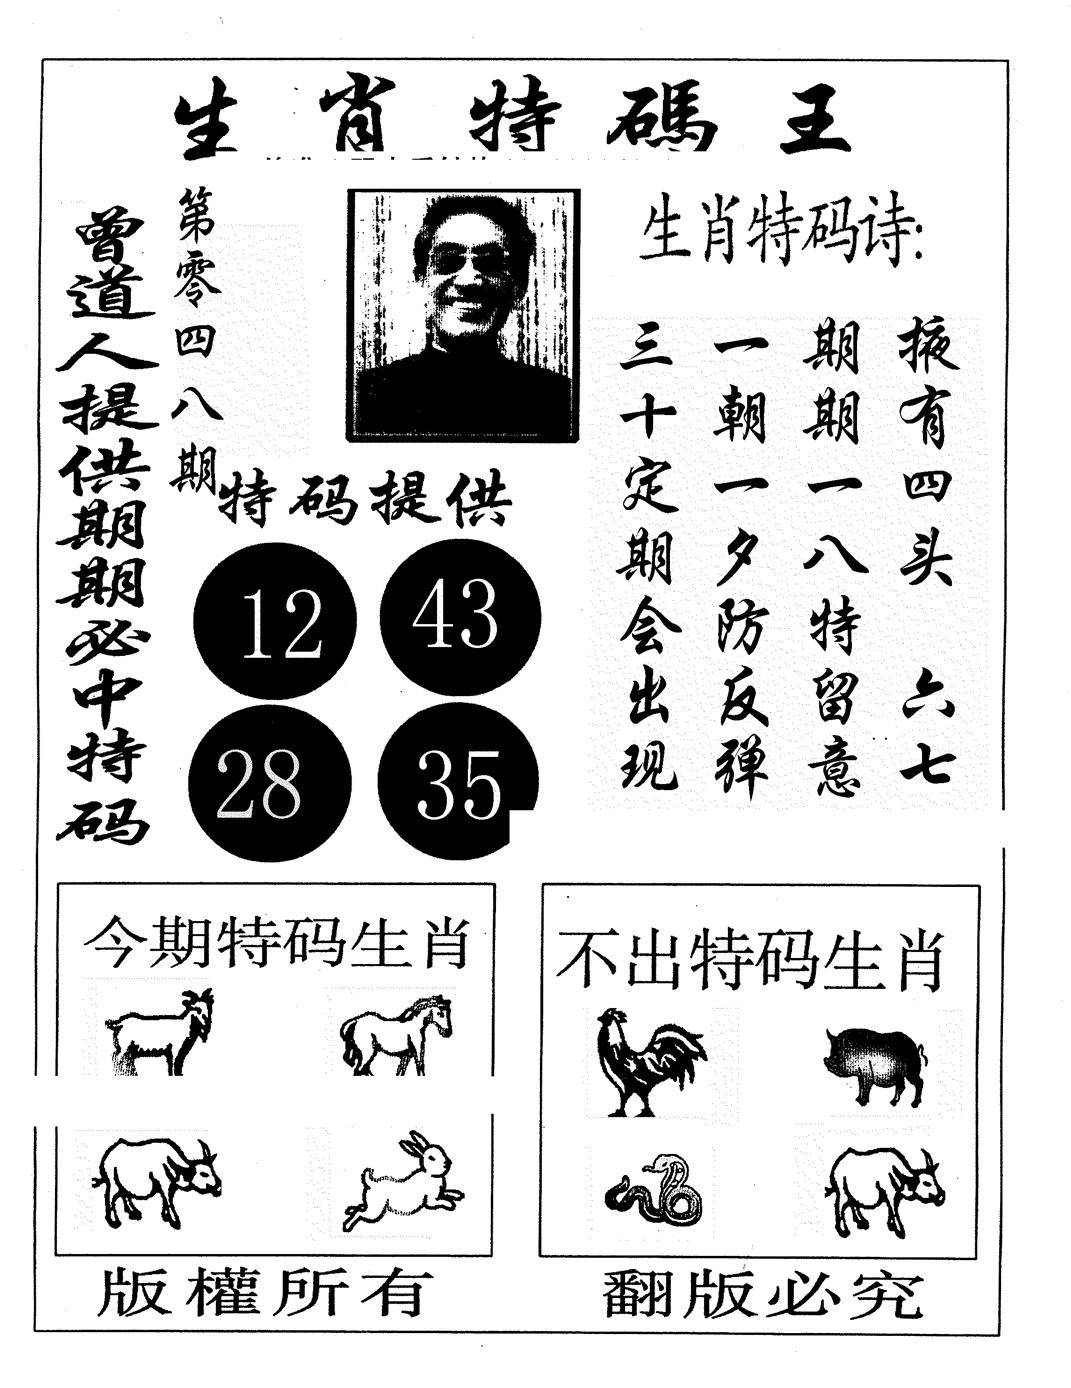 生肖特碼王
曾道人提供期期必中特码
第零四八期
生肖特码诗:
掖有四头 六七
期期一八特留意
一朝一夕防反弹
三十定期会出现
特码提供
12 43
28 35
今期特码生肖
不出特码生肖
版權所有
翻版必究